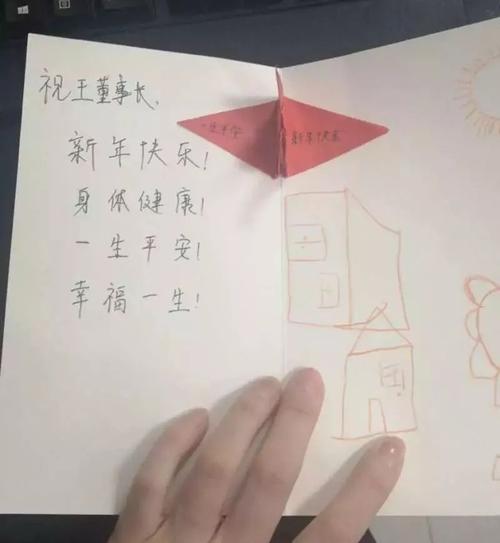 祝王董事长,
新年快乐!
身体健康!
一生平安!
幸福一生!
一生平安
新年快乐